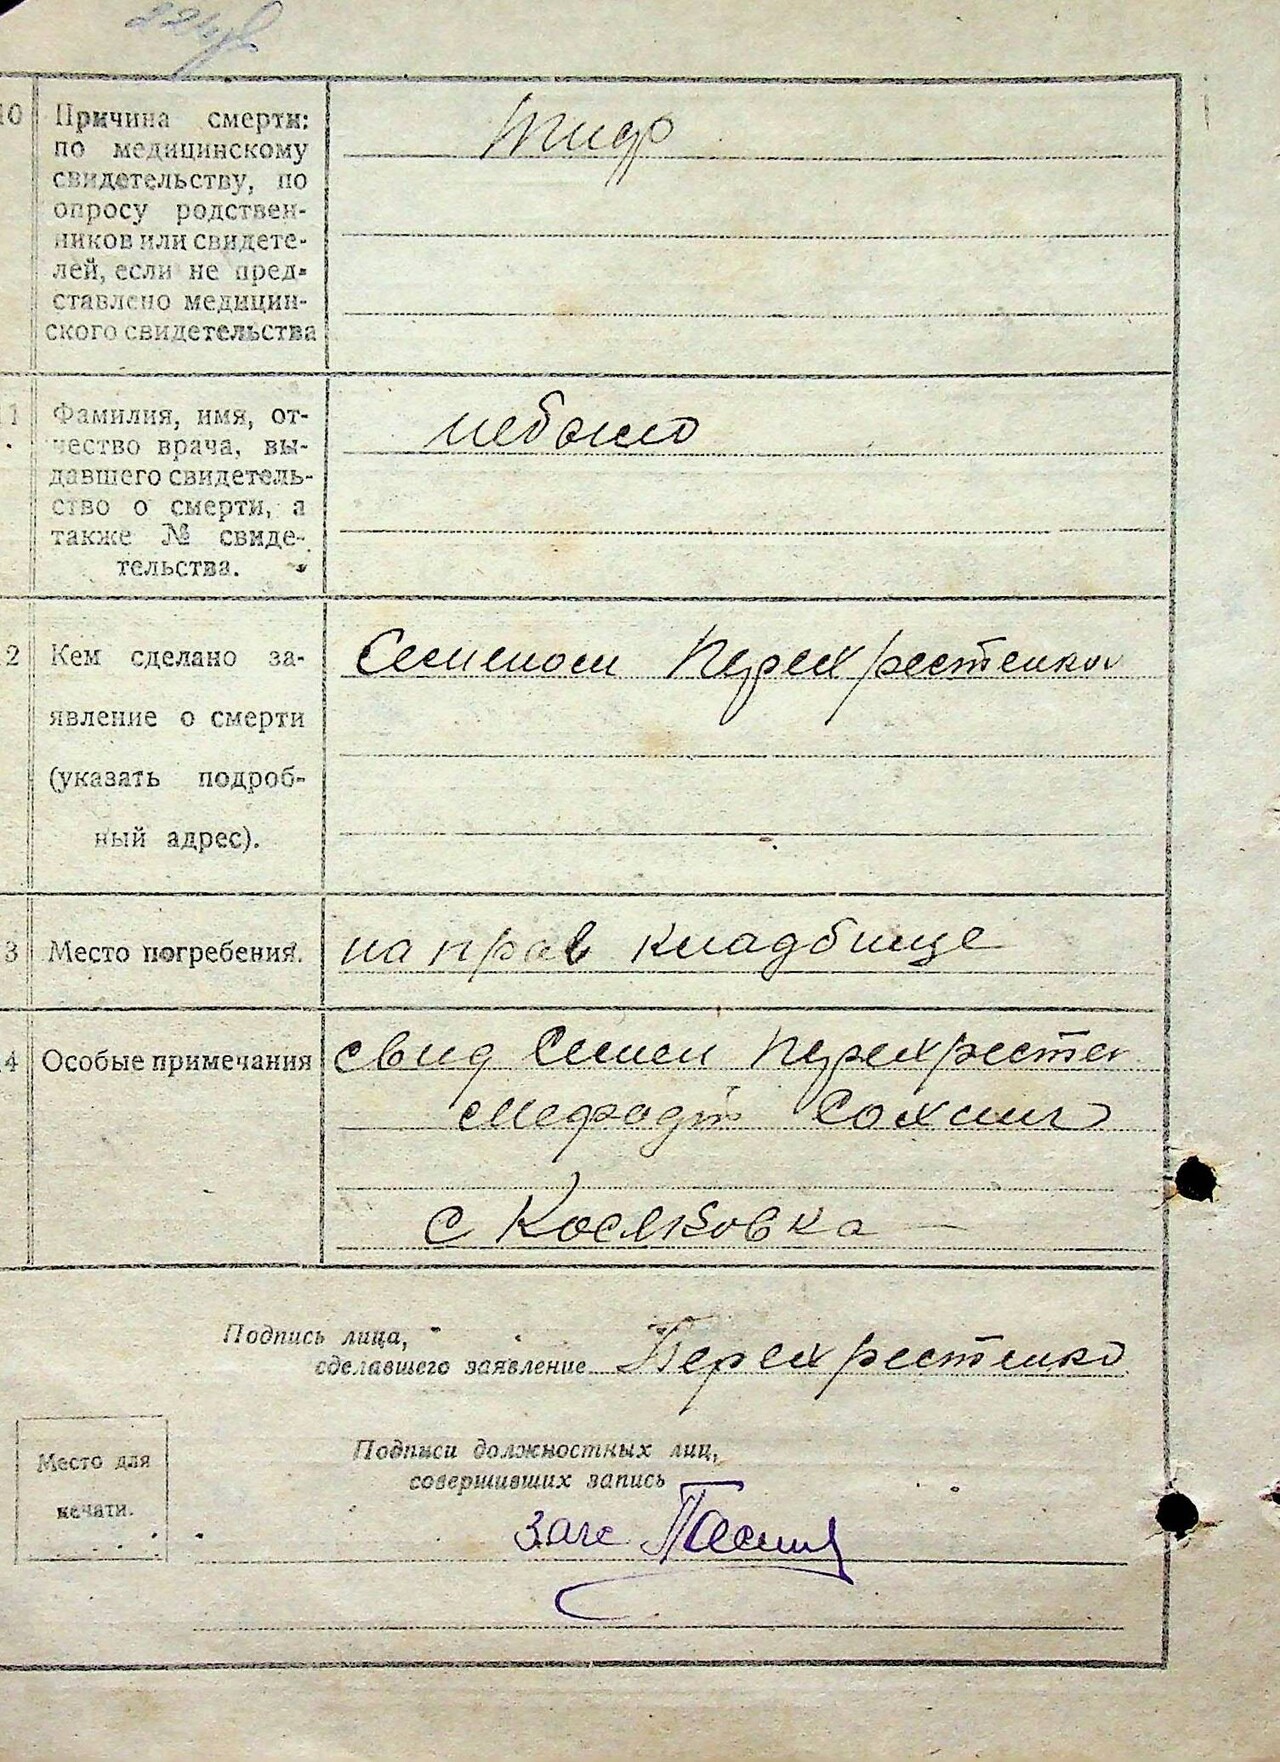 10 Причина смерти:
по медицинскому
свидетельству, по
опросу родствен-
ников или свидете-
лей, если не пред-
ставлено медицин-
ского свидетельства
Тиф
11 Фамилия, имя, от-
чество врача, вы-
давшего свидетель-
ство о смерти, а
также № свиде-
тельства.
небыло
2 Кем сделано за-
явление о смерти
(указать подроб-
ный адрес).
Семеном Перехрестенком
3 Место погребения.
на прав кладбище
4 Особые примечания
свид Семен Перехрестен
Мефодий
с
Подпись лица,
сделавшего заявление Перехрестенко
Место для
печати.
Подписи должностных лиц,
совершивших запись
загс